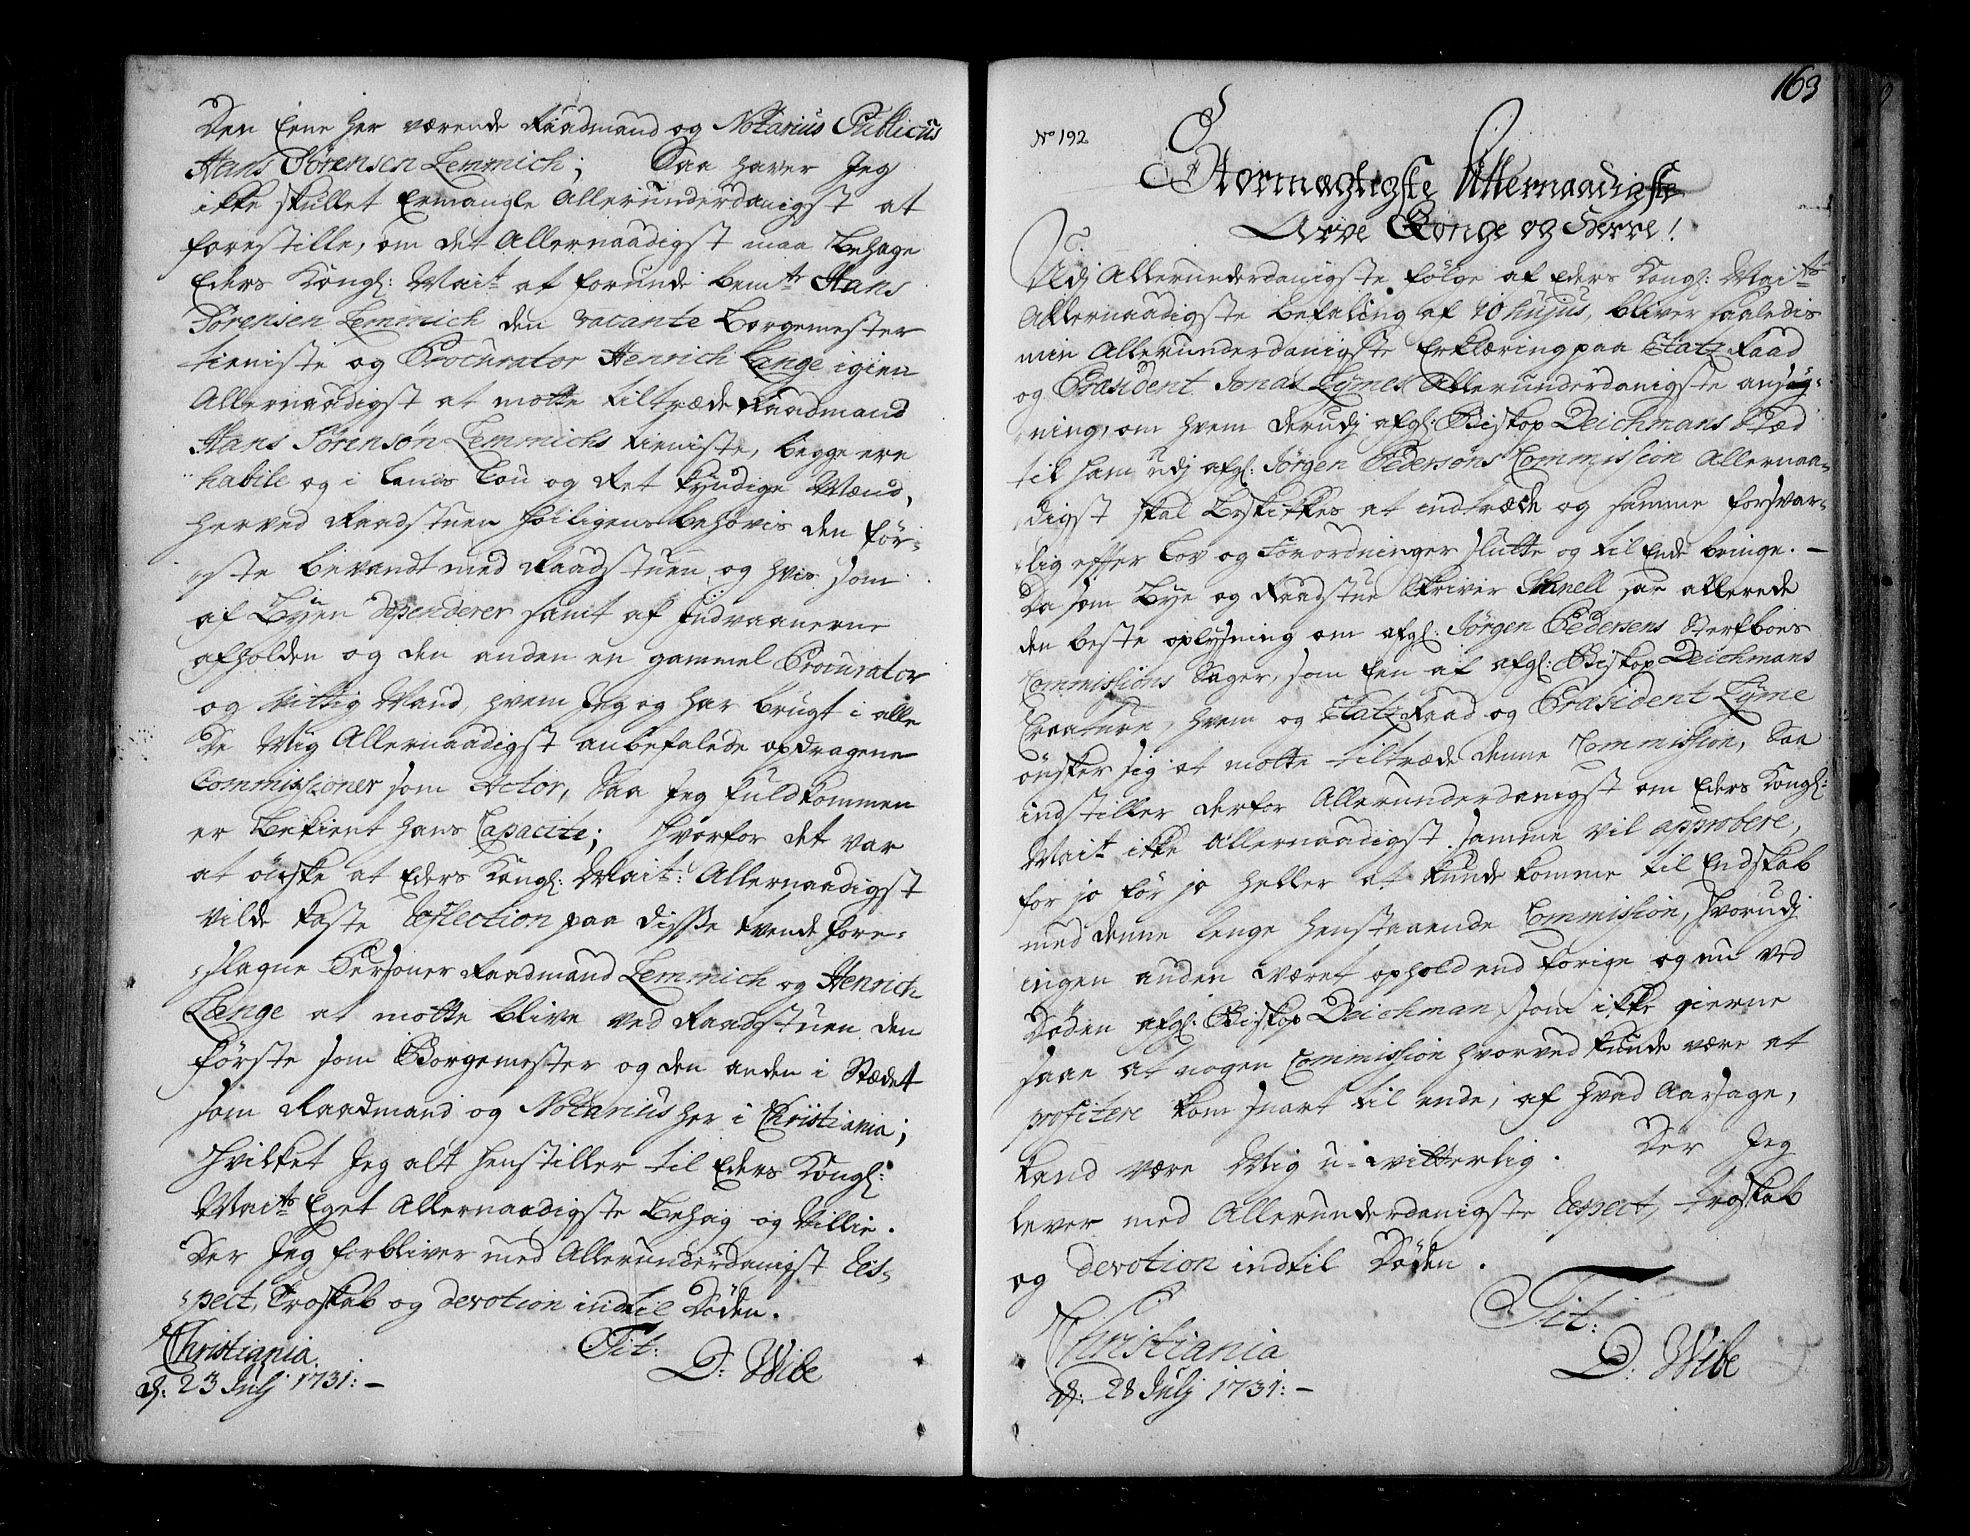 Den Eene her værende Raadmand og Notarius Publicus
Hans Sørensen Lemmich; Saa haver Jeg
ikke skullet Ermangle Allerunderdanigst at
forestille, om det Allernaadigst maa Behage
Eders Kongl: Mait: at forunde bemte Hans
Sørensen Lemmich den vacante Borgemester
tieniste og Procurator Henrich Lange igien
Allernaadigst at motte tiltræde Raadmand
Hans Sørensøn Lemmichs tieniste, begge ere
habile og i Lands Lou og Ret kyndige Mænd,
herved Raadstuen høiligens behøvis den før-
ste bevandt med Raadstuen og hvis som
af Byen dependerer samt af Indvaanerne
afholden og den anden en gammel Procurator
og vittig Mand, hvem Jeg og har brugt i alle
De Mig Allernaadigst anbefalede opdragene
Commissioner som Actor, Saa Jeg fuldkommen
er bekient hans Capacite; Hvorfor det var
at ønske at Eders Kongl: Mait: Allernaadigst
vilde kaste Reflection paa disse tvende fore-
slagne Persioner Raadmand Lemmich og Henrich
Lange at motte blive ved Raadstuen den
første som Borgemester og den anden i Stædet
som Raadmand og Notarius her i Christiania;
Hvilket Jeg alt henstiller til Eders Kongl:
Maits Eget Allernaadigste Behag og Villie.
Der Jeg forbliver med Allerunderdanigst Res-
pect, Troskab og devotion indtil Døden.
Christiania
d: 23 Julj 1731:
Tit:
D: Wibe
163
No 192
Stormægtigste Allernaadigste
Arve Konge og Herre!
Udj Allerunderdanigste følge af Eders Kongl: Maits
Allernaadigste Befaling af 20 hujus, bliver saaledis
min Allerunderdanigste Erklæring paa Etatz Raad
og Præsident Jonas Lymes Allerunderdanigste ansøg-
ning, om hvem derudj afgl: Biskop Deichmans Stæd
til ham udj afgl: Jørgen Pedersøns Commission Allernaa-
digst skal Beskikkes at indtræde og samme forsvar-
lig efter Lov og Forordninger slutte og til Ende bringe.
Da som Bye og Raadstue Skriver Skinell har allerede
den beste oplysning om afgl: Jørgen Pedersens Sterfboes
Commissions Sager, som Een af afgl: Biskop Deichmans
Creature, hvem og Etatz Raad og Præsident Lyme
ønsker sig at motte tiltræde denne Commission, Saa
indstiller derfor Allerunderdanigst om Eders Kongl:
Mait ikke Allernaadigst samme vil approbere,
for jo før jo heller at kunde komme til Endskab
med denne lenge henstaaende Commission, hvorudj
ingen anden været ophold end forige og nu ved
Døden afgl: Biskop Deichman som ikke gierne
saae at nogen Commission hvorved kunde være at
profitere kom snart til ende, af hvad Aarsage,
kand være Mig u-vitterlig. Der Jeg
lever med Allerunderdanigste Respect, troskab
og devotion indtil Døden.
Christiania
d: 28 Julj 1731:
Tit:
D: Wibe